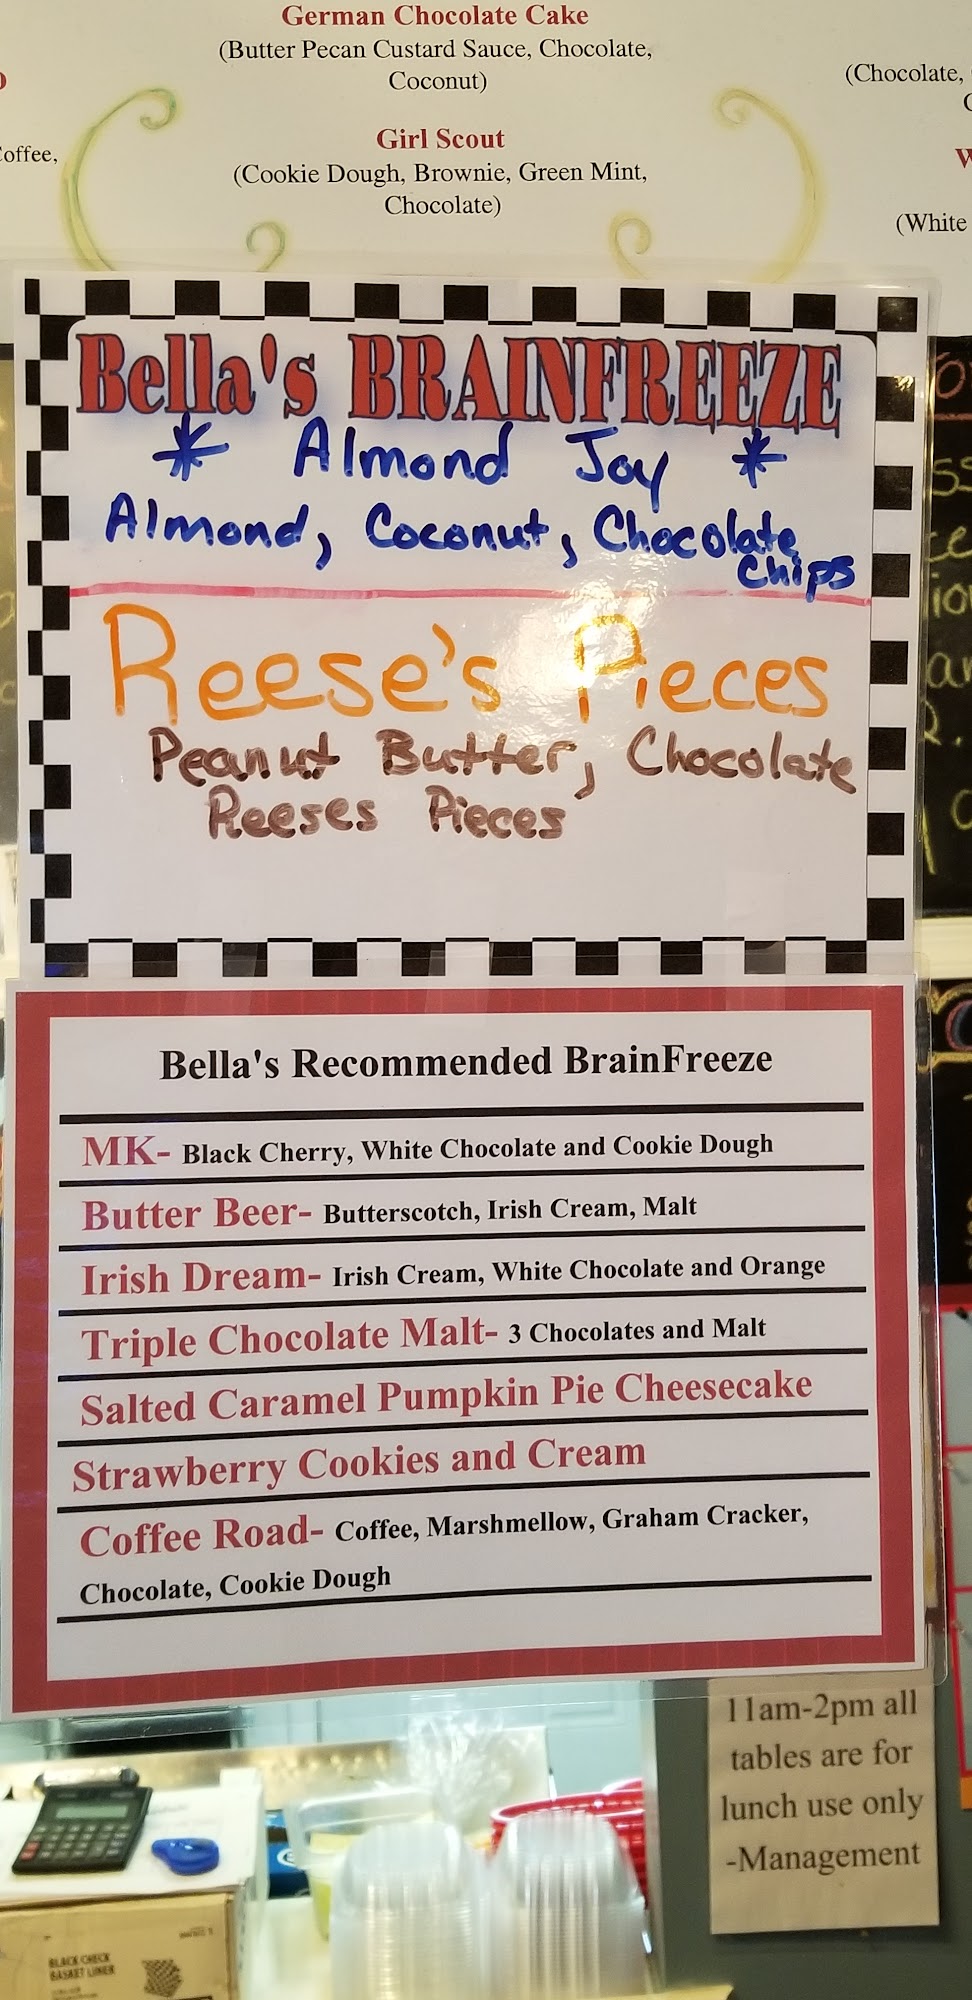 German Chocolate Cake
(Butter Pecan Custard Sauce, Chocolate,
Coconut)
Girl Scout
(Cookie Dough, Brownie, Green Mint,
Chocolate)
(Chocolate,
(White
Bella's BRAINFREEZE
* Almond Joy *
Almond, Coconut, Chocolate
Chips
Reese's Pieces
Peanut Butter, Chocolate
Reeses Pieces
Bella's Recommended BrainFreeze
MK- Black Cherry, White Chocolate and Cookie Dough
Butter Beer- Butterscotch, Irish Cream, Malt
Irish Dream- Irish Cream, White Chocolate and Orange
Triple Chocolate Malt- 3 Chocolates and Malt
Salted Caramel Pumpkin Pie Cheesecake
Strawberry Cookies and Cream
Coffee Road- Coffee, Marshmellow, Graham Cracker,
Chocolate, Cookie Dough
11am-2pm all
tables are for
lunch use only
-Management
BLACK CHECK
BASKET LINER